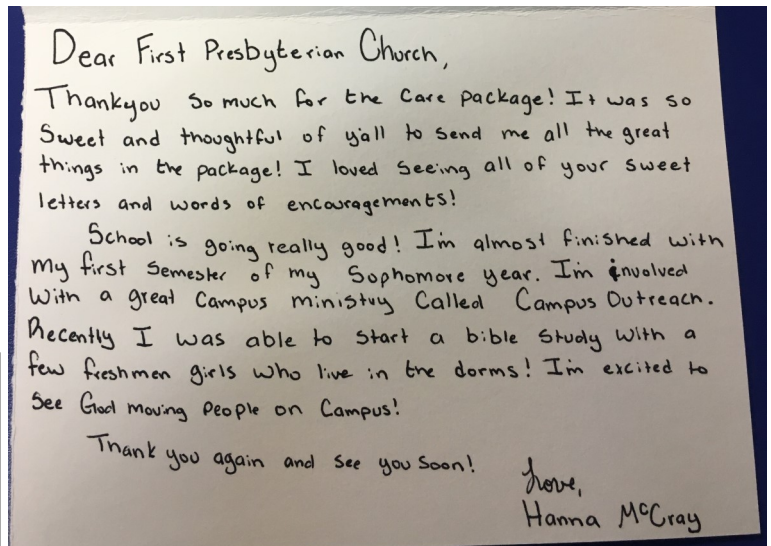 Dear First Presbyterian Church,
Thankyou so much for the care package! It was so
sweet and thoughtful of y'all to send me all the great
things in the package! I loved seeing all of your sweet
letters and words of encouragements!
School is going really good! I'm almost finished with
my first semester of my Sophomore year. I'm involved
with a great campus ministry called Campus Outreach.
Recently I was able to start a bible study with a
few freshmen girls who live in the dorms! I'm excited to
see God moving people on campus!
Thank you again and see you soon!
Love,
Hanna McCray